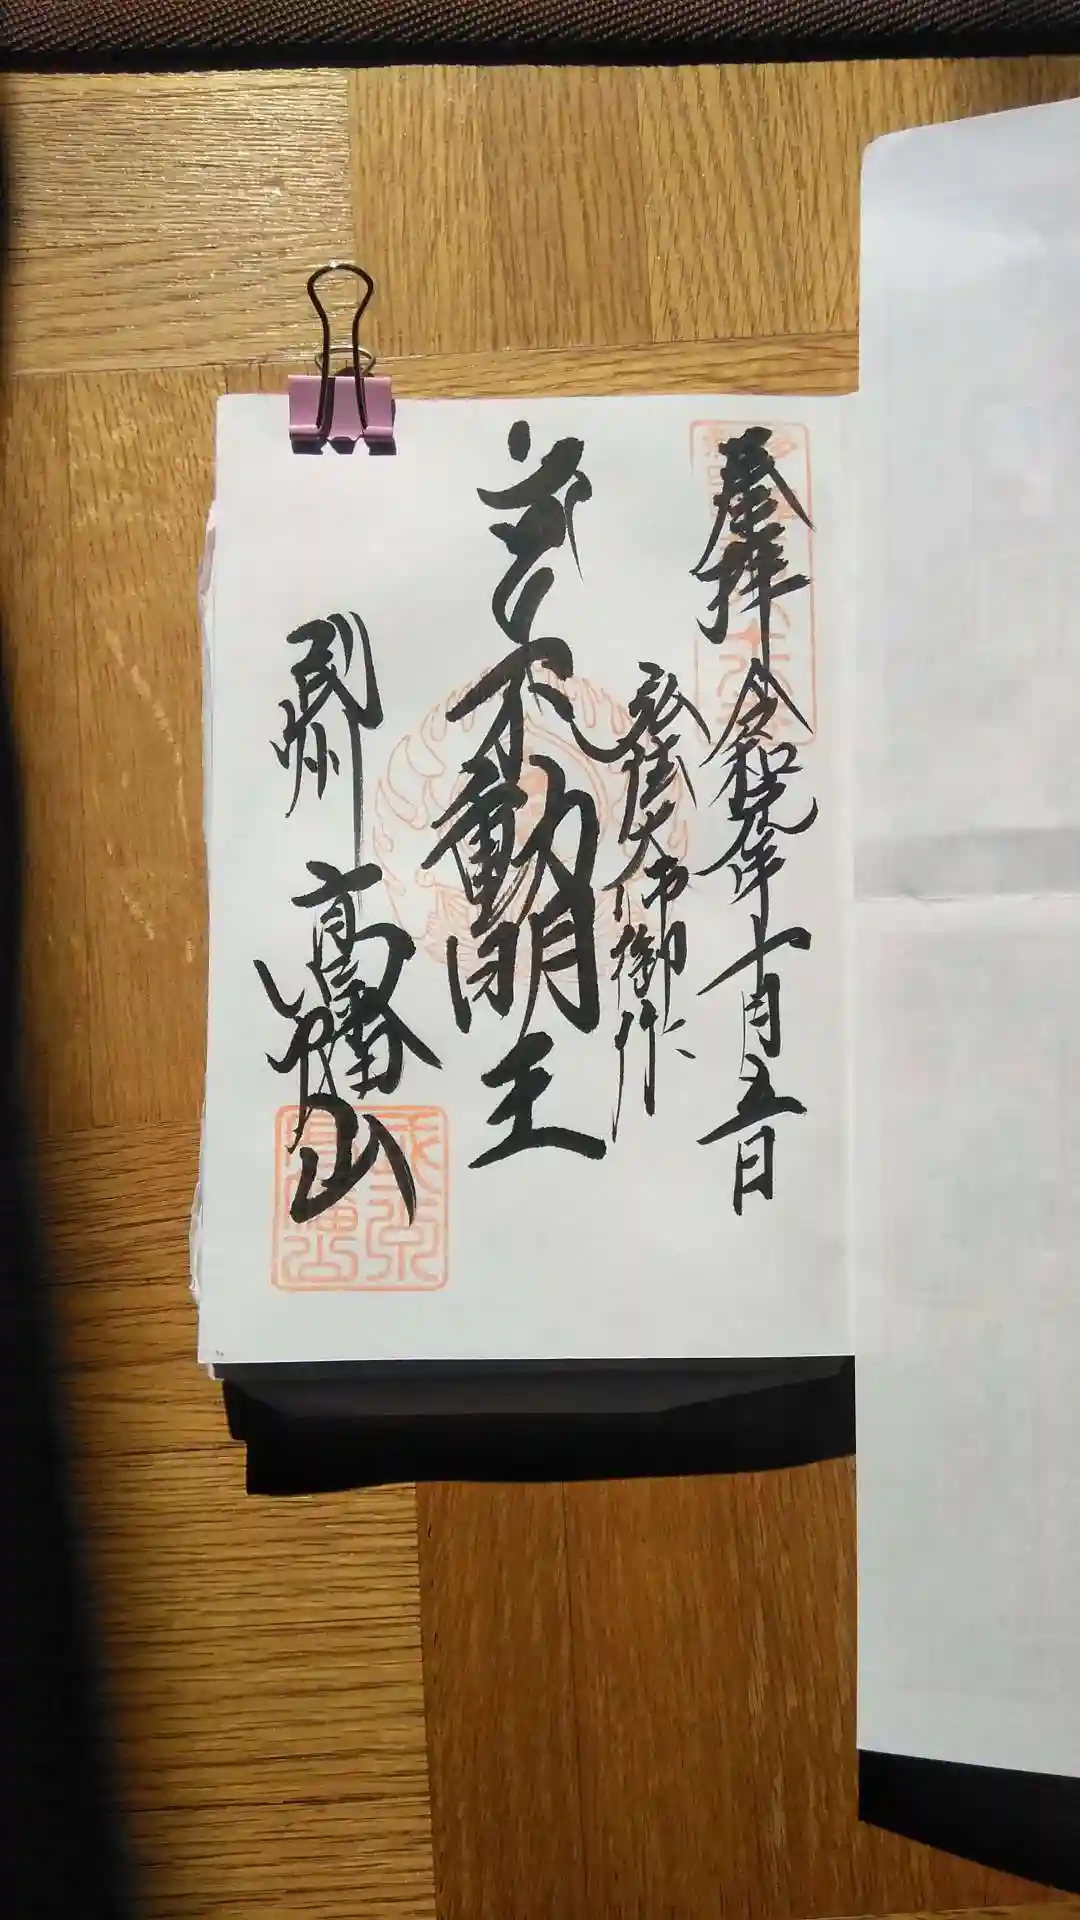 奉拝 令和元年十月五日
弘法大師御作
不動明王
武州 高幡山